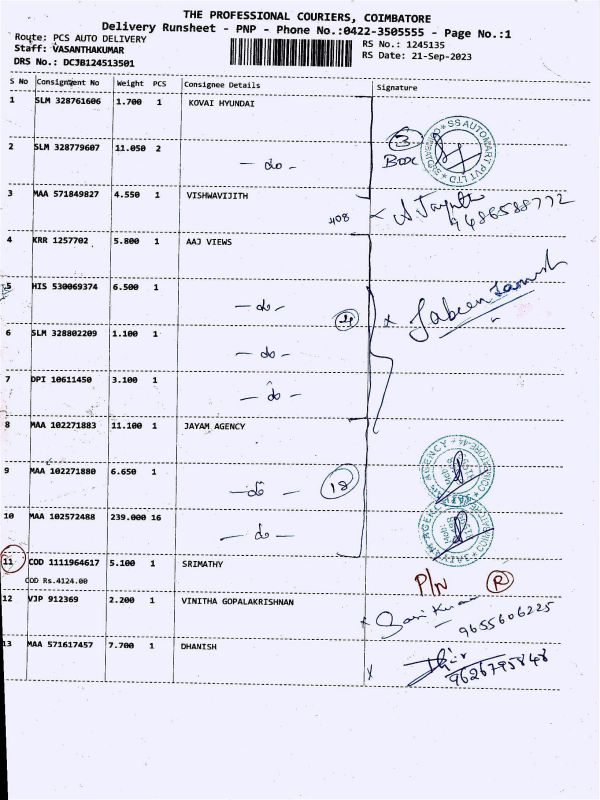 THE PROFESSIONAL COURIERS, COIMBATORE
Delivery Runsheet - PNP - Phone No.:0422-3505555 - Page No.:1
Route: PCS AUTO DELIVERY
Staff: VASANTHAKUMAR
DRS No.: DCJB124513501
RS No.: 1245135
RS Date: 21-Sep-2023
S No Consignment No Weight PCS Consignee Details Signature
1 SLM 328761606 1.700 1 KOVAI HYUNDAI
3 Box
SS AUTOMART PVT LTD
2 SLM 328779607 11.050 2 - do -
3 MAA 571849827 4.550 1 VISHWAVIJITH
408 9486588772
4 KRR 1257702 5.800 1 AAJ VIEWS
5 HIS 530069374 6.500 1 - do -
4
6 SLM 328802209 1.100 1 - do -
7 DPI 10611450 3.100 1 - do -
8 MAA 102271883 11.100 1 JAYAM AGENCY
9 MAA 102271880 6.650 1 - do - 18
10 MAA 102572488 239.000 16 - do -
11 COD 1111964617 5.100 1 SRIMATHY
COD Rs.4124.00
P/N R
12 VJP 912369 2.200 1 VINITHA GOPALAKRISHNAN
9655606225
13 MAA 571617457 7.700 1 DHANISH
9626795848